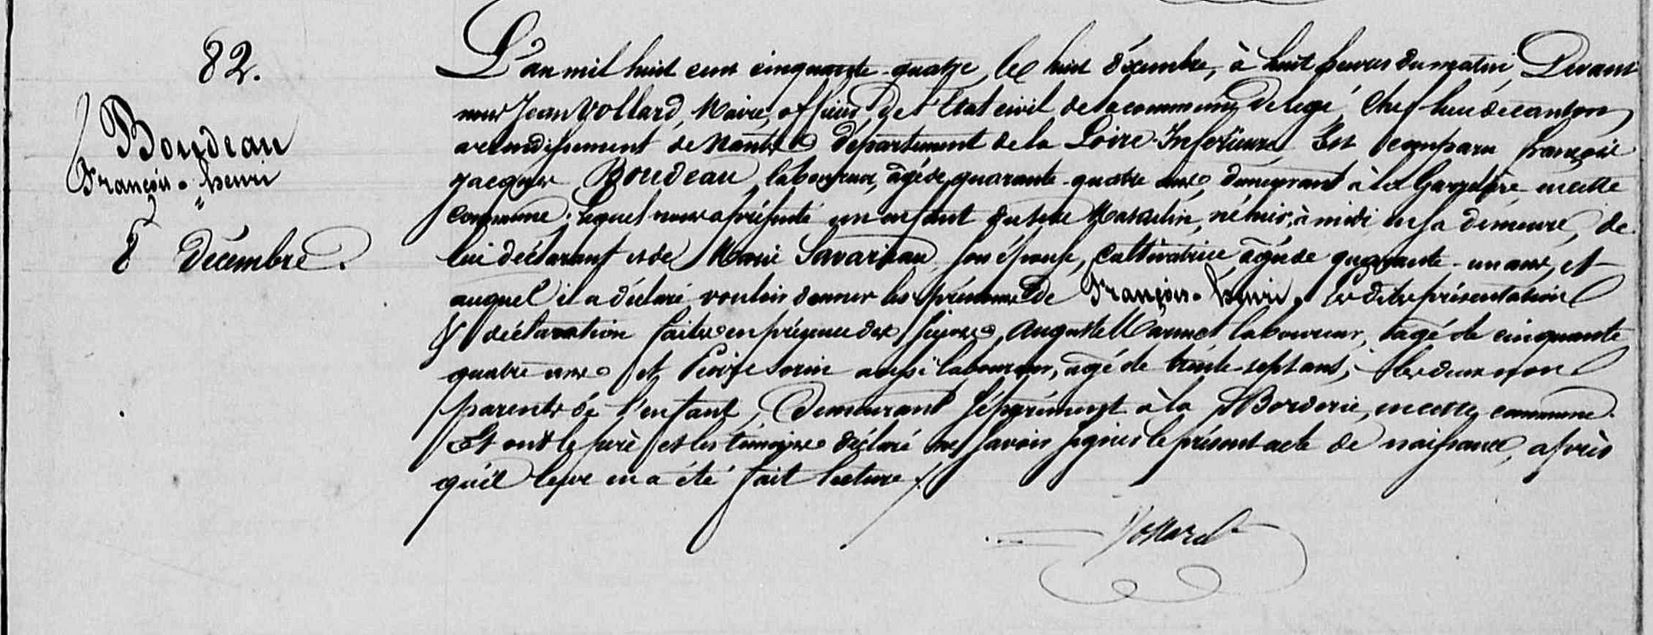 82.
Boudeau
François-henri
8 Décembre.
L'an mil huit cent cinquante-quatre, le huit décembre, à huit heures du matin, Devant
nous Jean Vollard, Maire, officier de l'Etat civil de la commune de Legé, Chef lieu de canton,
arrondissement de Nantes département de la Loire-Inférieure Est comparu françois
jacques Boudeau, laboureur, âgé de quarante-quatre ans, demeurant à la en cette
commune; lequel nous a présenté un enfant du sexe Masculin, né hier, à midi en sa demeure, de
lui déclarant et de Marie Savariau son épouse, cultivatrice, âgée de quarante-un ans, et
auquel il a déclaré vouloir donner les prénoms de François-henri, les dites présentation
& déclaration faites en présence des sieurs Auguste laboureur, âgé de cinquante
quatre ans et Pierre Sorin aussi laboureur, âgé de trente-sept ans; les deux non
parents de l'enfant, Demeurant séparément à la Borderie, en cette commune.
Et ont le père et les témoins déclaré ne savoir signer le présent acte de naissance, après
qu'il leur en a été fait lecture /.
Vollard